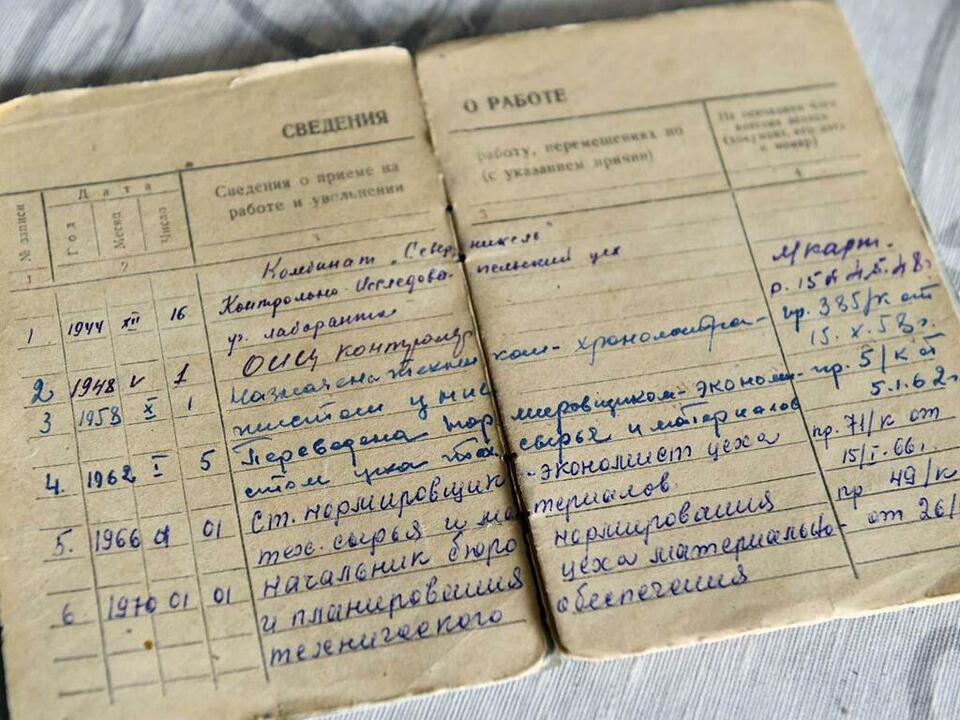 СВЕДЕНИЯ О РАБОТЕ
№ записи
Дата
Год
Месяц
Число
Сведения о приеме на работу, перемещениях по
работе и увольнении (с указанием причин)
На основании чего
внесена запись
(документ, его дата
и номер)
1 2 3 4
Комбинат „Североникель"
Контрольно-Исследовательский цех
1 1944 XII 16 лаборантка
р. 15
2 1948 V 1 ОИЦ контролер
3 1958 X 1 Назначена техником-хронометражистом
пр. 385/к от
15.X.58г.
4. 1962 I 5 Переведена нормировщиком-экономистом цеха тех. сырья и материалов
пр. 5/к от
5.1.62г
5. 1966 01 01 Ст. нормировщик-экономист цеха
тех. сырья и материалов.
пр. 71/к от
15/I-66г.
6. 1970 01 01 Начальник бюро нормирования
и планирования цеха материально-
технического обеспечения
пр 49/к
от 26/